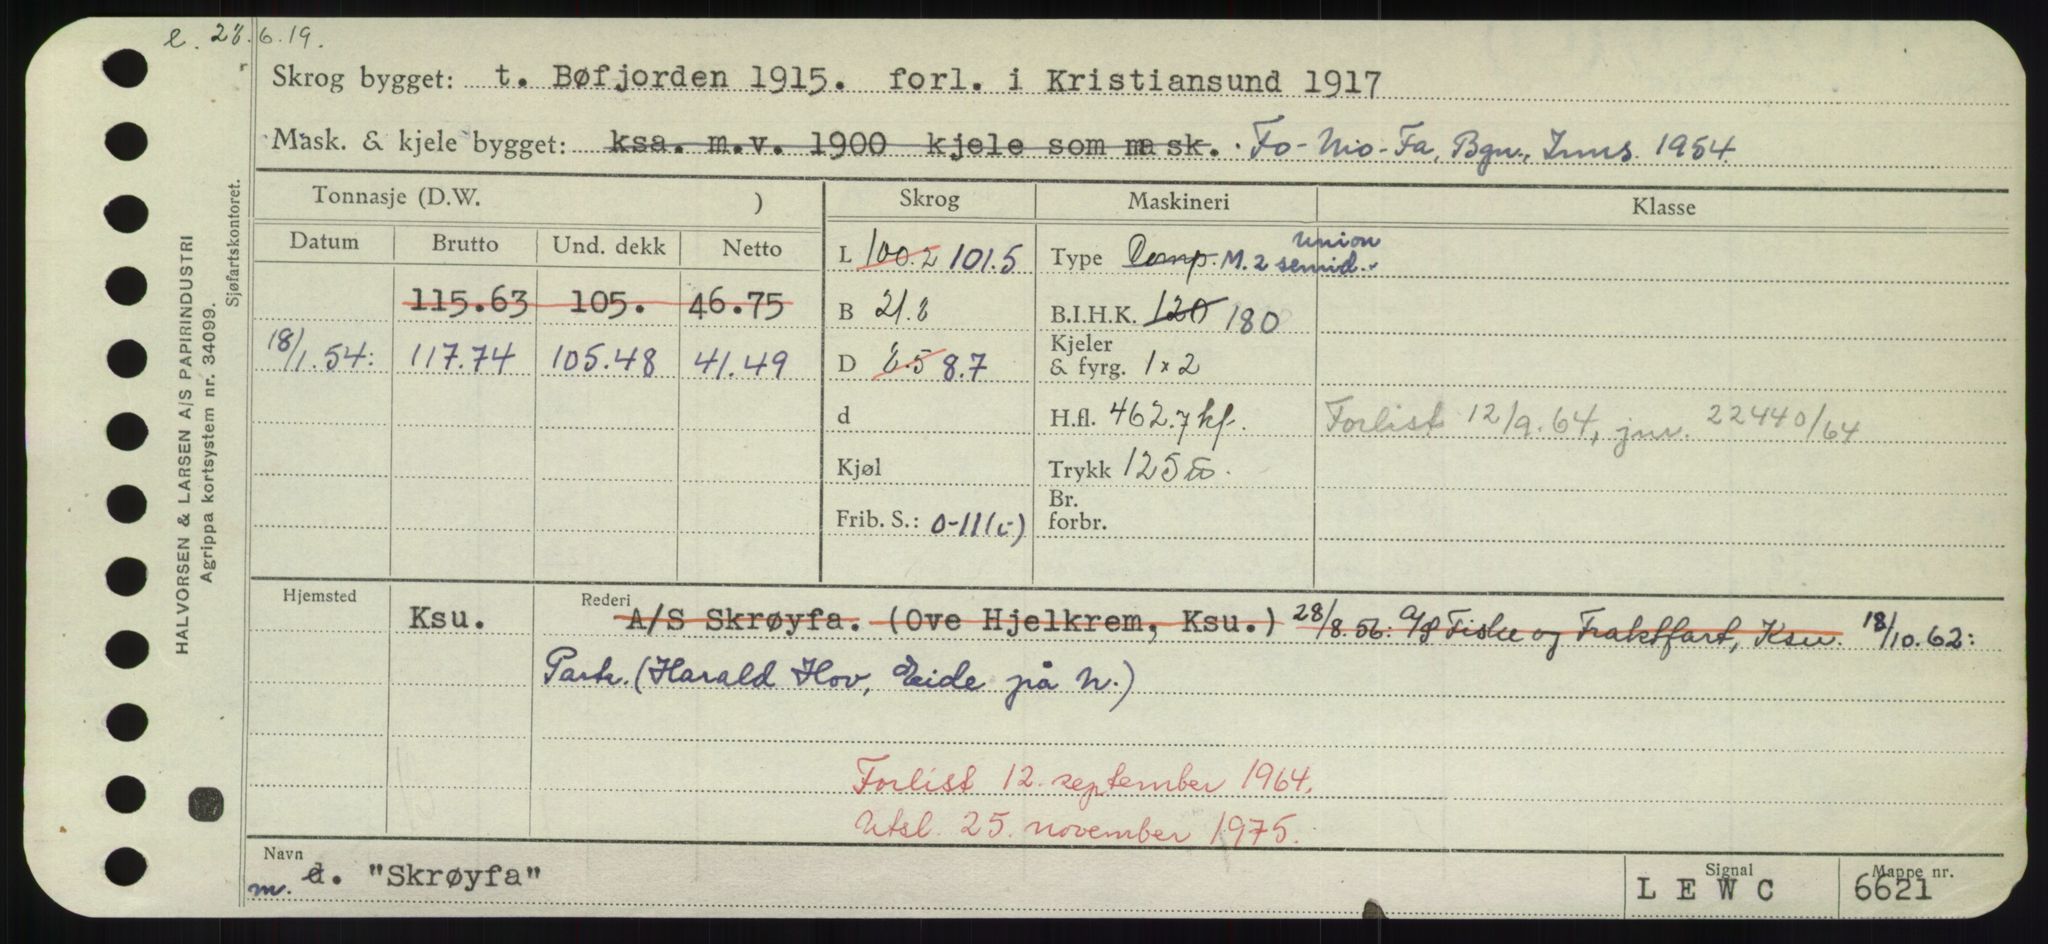 e. 28.6.19.
Skrog bygget: t. Bøfjorden 1915. forl. i Kristiansund 1917
Mask. & kjele bygget: ksa. m.v. 1900 kjele som mask. Fo-Mo-Fa, Bgn., Inns. 1954
Tonnasje (D.W. ) Skrog Maskineri Klasse
Datum Brutto Und. dekk Netto
L 100.2 101.5 Type Damp. M. 2 semid. Union
115.63 105. 46.75 B 21.8 B.I.H.K. 120 180
18/1.54: 117.74 105.48 41.49 D 8.5 8.7 Kjeler & fyrg. 1x2
d H.fl. 462.7 kf. Forlist 12/9.64, jnr. 22440/64
Kjøl Trykk 125
Frib. S.: 0-11 Br. forbr.
Hjemsted Ksu. Rederi A/S Skrøyfa. (Ove Hjelkrem, Ksu.) 28/8.56: A/S Fiske og Fraktfart, Ksu. 18/10.62:
Partr. (Harald Hov, Eide på N.)
Forlist 12. september 1964.
Utsl. 25. november 1975.
Navn Signal Mappe nr.
m. d. "Skrøyfa" L E W C 6621
HALVORSEN & LARSEN A/S PAPIRINDUSTRI
Agrippa kortsystem nr. 34099.
Sjøfartskontoret.